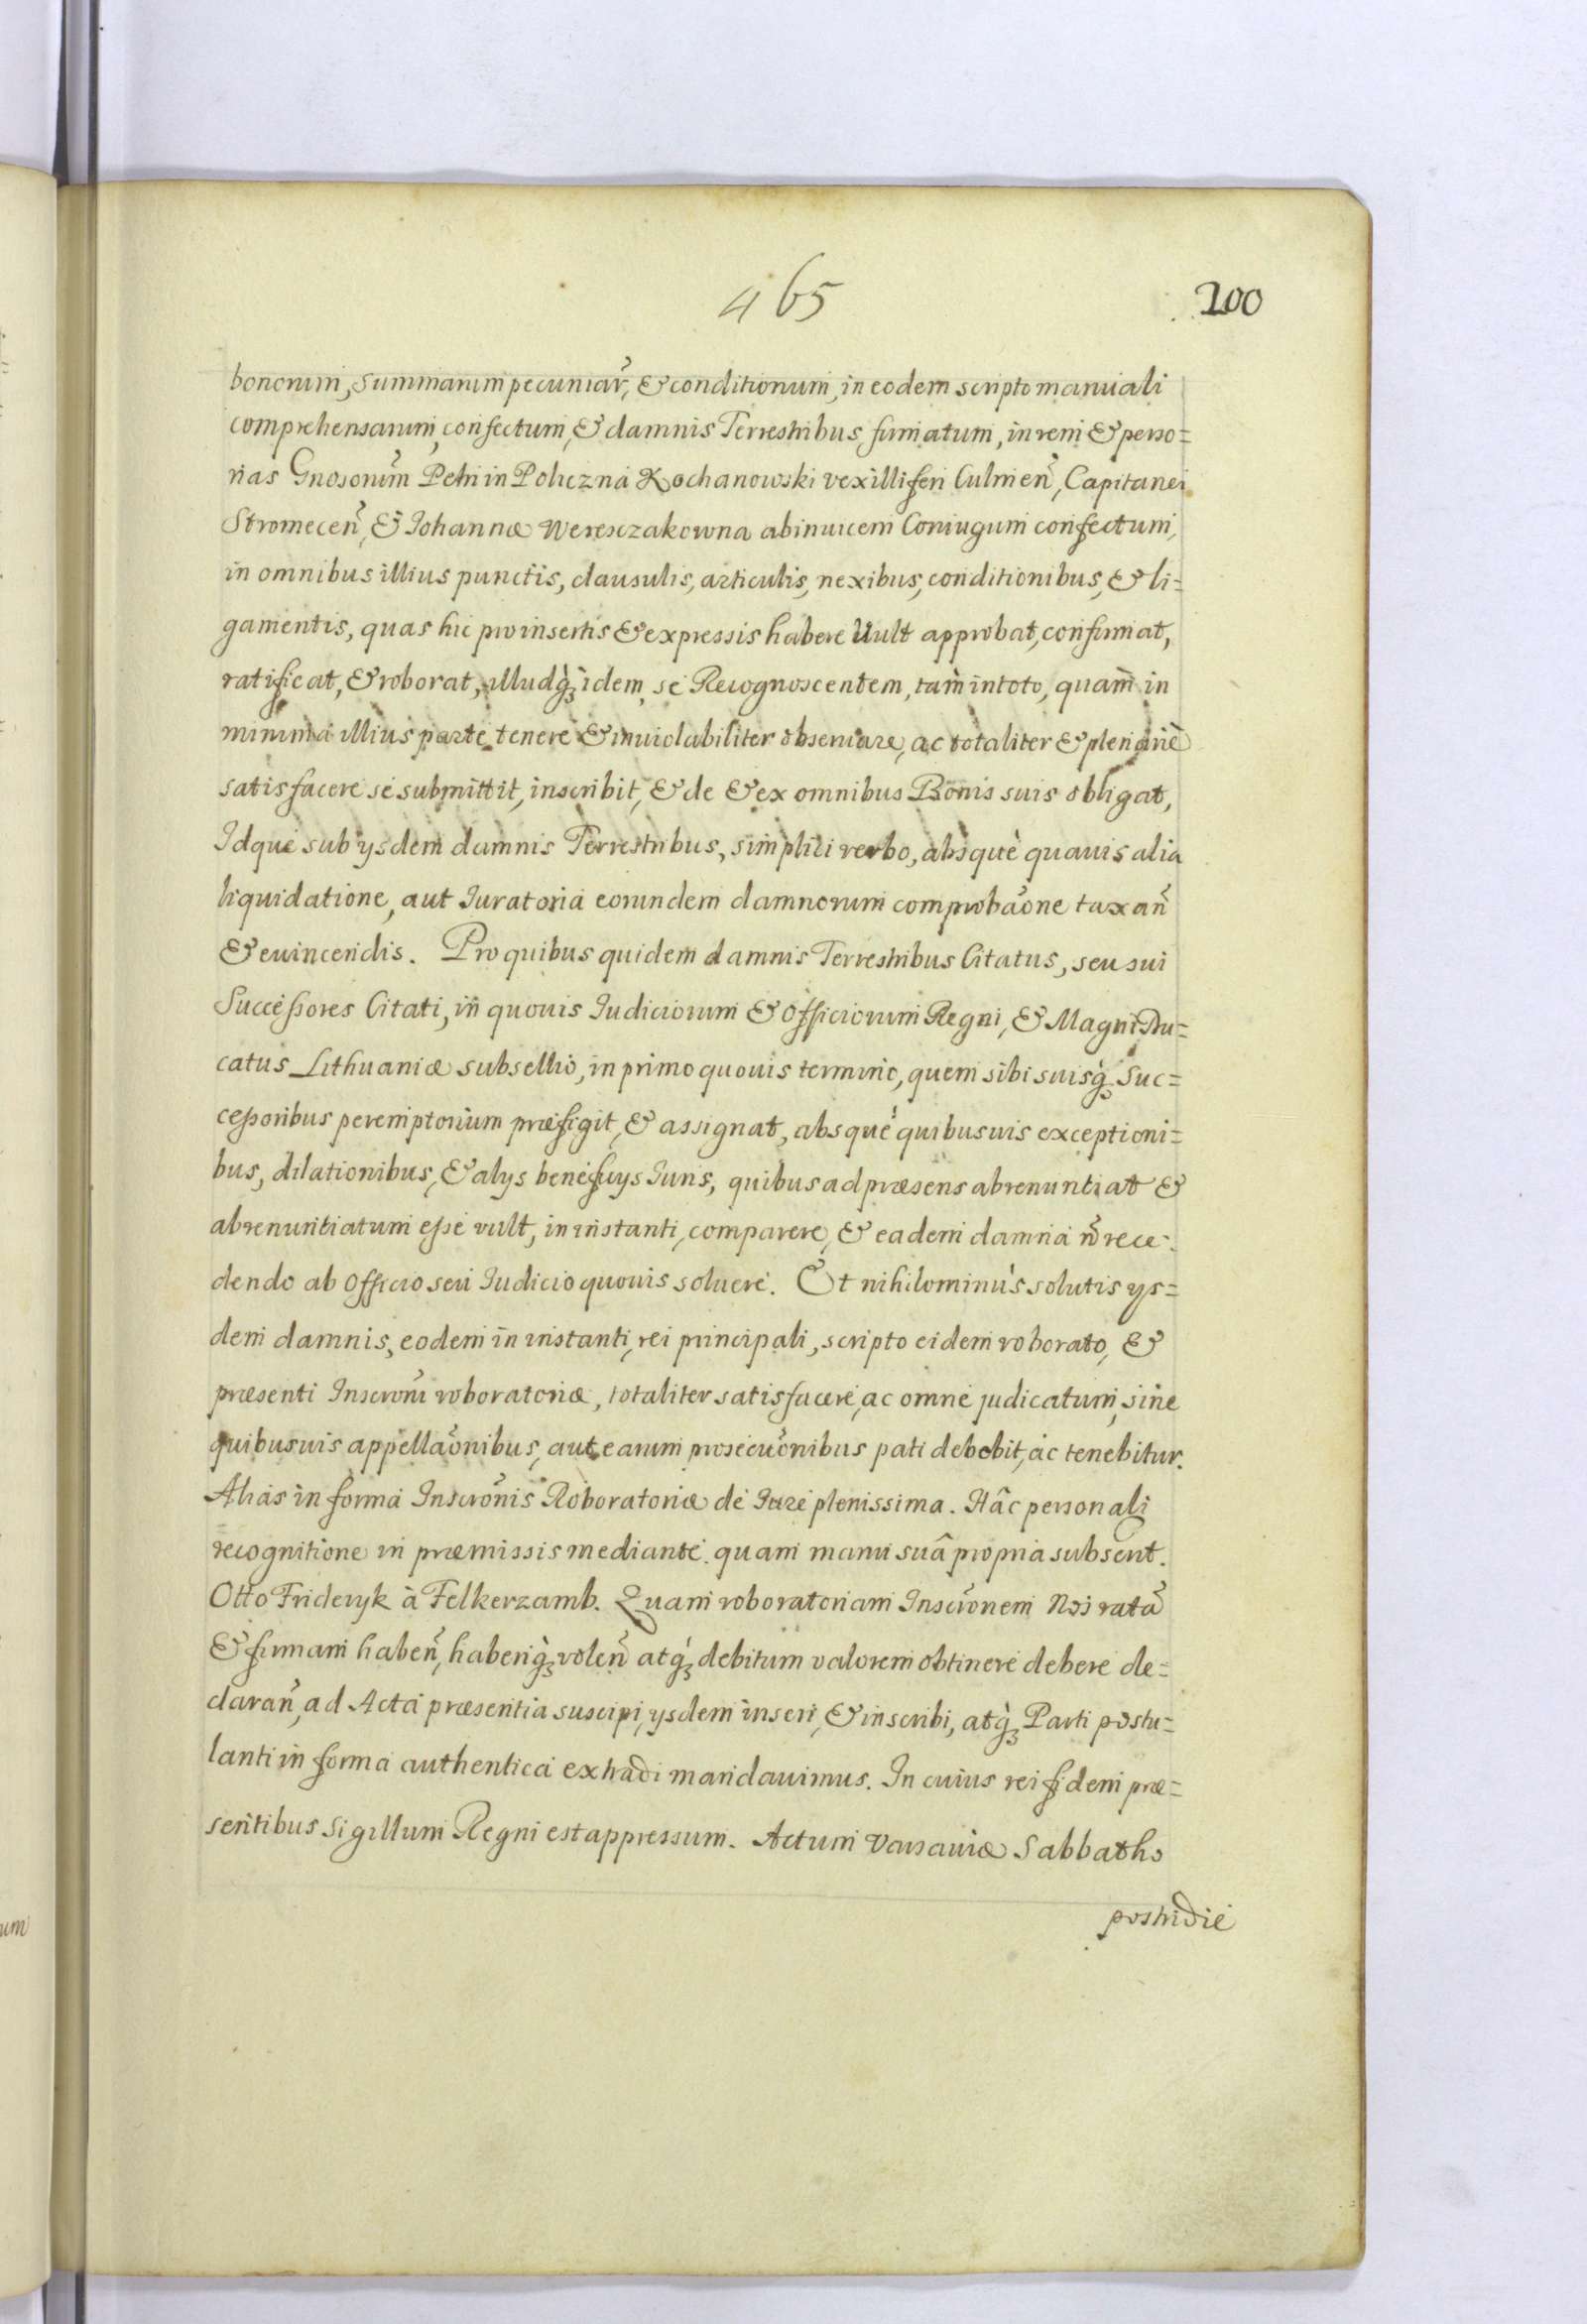 465
200
bonorum, summarum pecuniar̃, & conditionum, in eodem scripto manuali
comprehensarum, confectum, & damnis Terrestribus firmatum, in rem & perso=
nas Gnosorum̃ Petri in Policzna Kochanowski vexilliferi Culmeñ, Capitanei
Stromeceñ, & Johannæ Weresczakowna abinuicem Coniugum confectum,
in omnibus illius punctis, clausulis, articulis, nexibus, conditionibus, & li=
gamentis, quas hic pro insertis & expressis habere Uult approbat, confirmat,
ratificat, & roborat, illudq̀ꝫ idem se Recognoscentem, tam̀ in toto, quam̀ in
minima illius parte tenere & inuiolabiliter obseruare, ac totaliter & plenariè
satisfacere se submittit, inscribit, & de & ex omnibus Bonis suis obligat,
Idque sub ysdem damnis Terrestribus, simplici verbo, absquè quauis alia
liquidatione, aut Iuratoria eorundem damnorum comprobãone taxañ
& euincendis. Pro quibus quidem damnis Terrestribus Citatus, seu sui
Succeßores Citati, in quouis Iudiciorum & Officiorum Regni, & Magni Du=
catus Lithuaniæ subsellio, in primo quouis termino, quem sibi suisq̀ꝫ Suc=
ceßoribus peremptorium præfigit, & assignat, absquè quibusuis exceptioni=
bus, dilationibus, & alys beneficys Iuris, quibus ad præsens abrenuntiat &
abrenuntiatum eße vult, in instanti, comparere, & eadem damna ñ rece=
dendo ab Officio seu Iudicio quouis soluere. Et nihilominùs solutis ys=
dem damnis, eodem in instanti, rei principali, scripto eidem roborato, &
præsenti Inscrõni roboratoriæ, totaliter satisfacere, ac omne judicatum, sine
quibusuis appellãonibus, aut earum prosecũonibus pati debebit, ac tenebitur.
Alias in forma Inscrõnis Roboratoriæ de Iure plenissima. Hâc personali
recognitione in præmissis mediante. quam manu suâ propria subscrit.
Otto Frideryk à Felkerzamb. Quam roboratoriam Inscrõnem Nos ratã
& firmam habeñ, haberiq̀ꝫ voleñ atq̀ꝫ debitum valorem obtinere debere de=
clarañ, ad Acta præsentia suscipi, ysdem inseri, & inscribi, atq̀ꝫ Parti postu=
lanti in forma authentica extradi mandauimus. In cuius rei fidem præ=
sentibus Sigillum Regni est appressum. Actum Varsauiæ Sabbatho
postridie